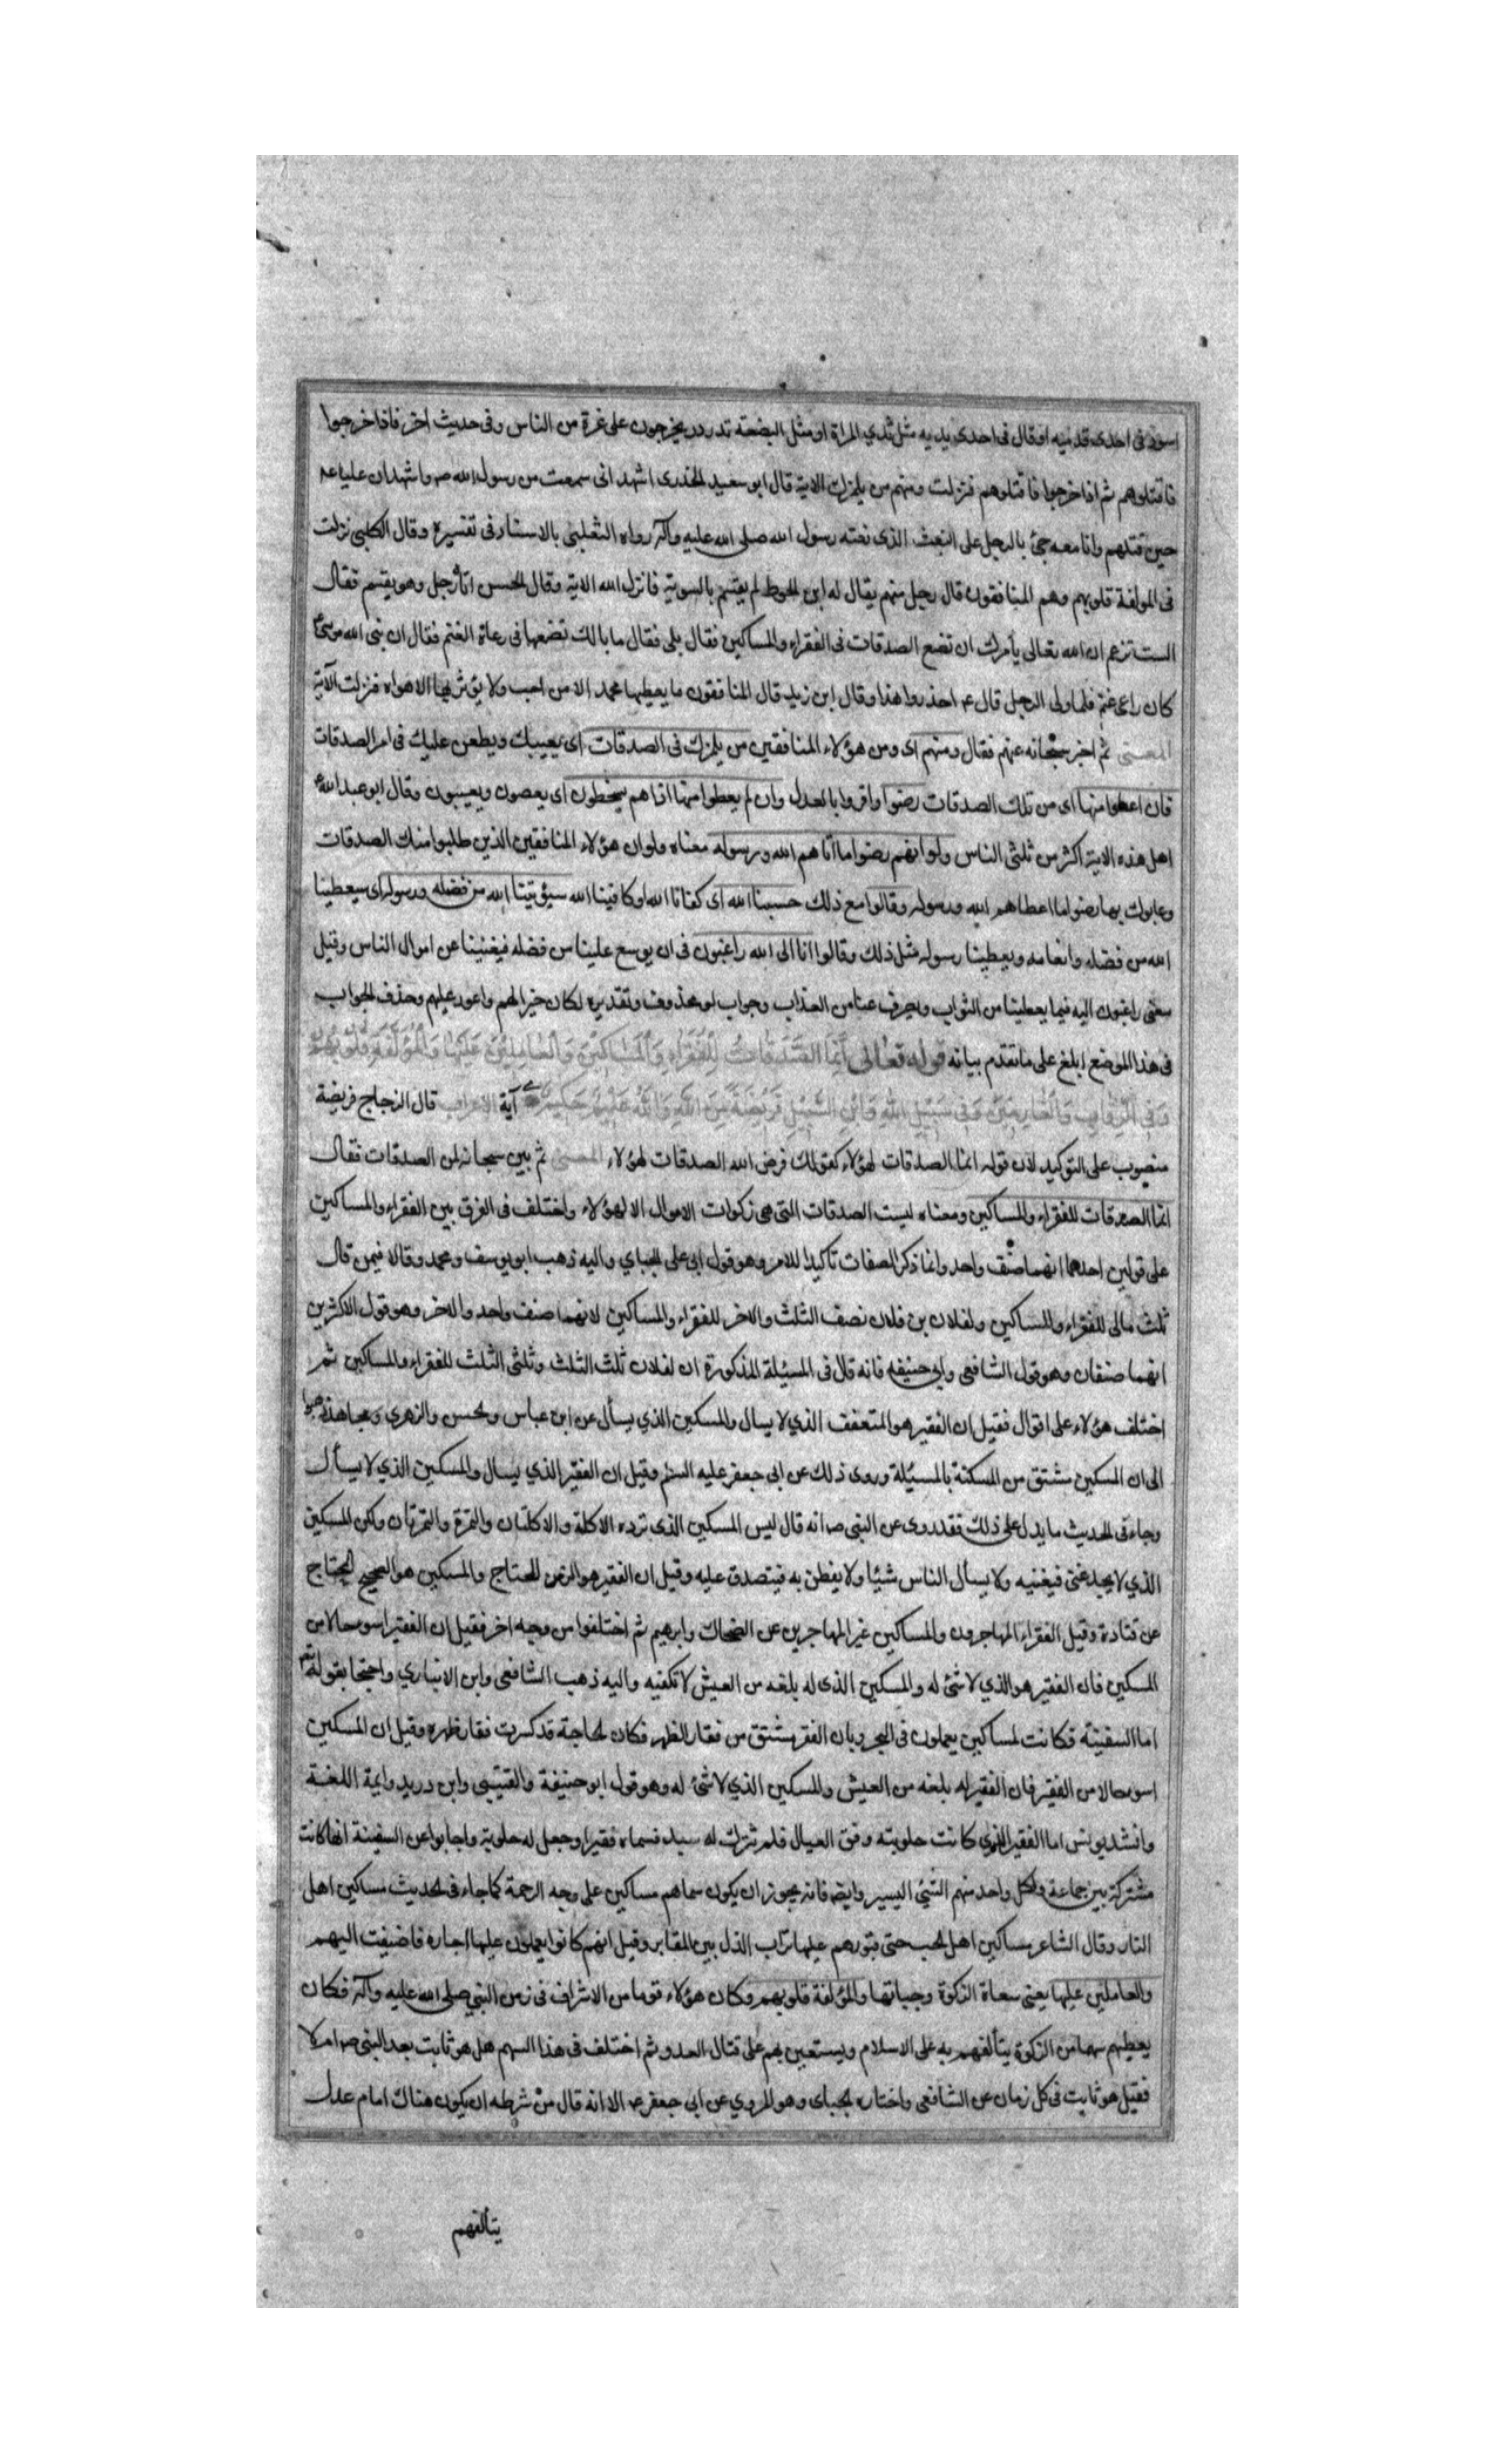 اسود فى احدى قدميه او قال فى احدى يديه مثل ثدي المراة او مثل البضعة تدردر يخرجون على فترة من الناس وفى حديث اخر فاذا خرجوا
فاقتلوهم ثم اذا خرجوا فاقتلوهم فنزلت ومنهم من يلمزك الاية قال ابو سعيد الخدرى اشهد انى سمعت من رسول الله صه واشهد ان عليا عه
حين قتلهم وانا معه جئ بالرجل على النعت الذى نعته رسول الله صلى الله عليه وآله رواه الثعلبى بالاسناد فى تفسيره وقال الكلبى نزلت
فى المولفة قلوبهم وهم المنافقون قال رجل منهم يقال له ابن الحوط لم يقسم بالسوية فانزل الله الاية وقال الحسن اتاه رجل وهو يقسم فقال
الست تزعم ان الله تعالى يأمرك ان تضع الصدقات فى الفقراء والمساكين فقال بلى فقال ما بالك تضعها فى رعاة الغنم فقال ان نبى الله موسى ع
كان راعى غنم فلما ولى الرجل قال عه احذروا هذا وقال ابن زيد قال المنافقون ما يعطيها محمد الا من احب ولا يؤثر بها الا هواه فنزلت الآية
المعنى ثم اخبر سبحانه عنهم فقال ومنهم اى ومن هؤلاء المنافقين من يلمزك فى الصدقات اى يعيبك ويطعن عليك فى امر الصدقات
فان اعطوا منها اى من تلك الصدقات رضوا واقروا بالعدل وان لم يعطوا منها اذا هم يسخطون اى يغضبون ويعيبون وقال ابو عبد الله ع
اهل هذه الاية اكثر من ثلثى الناس ولو انهم رضوا ما اتاهم الله ورسوله معناه ولو ان هؤلاء المنافقين الذين طلبوا منك الصدقات
وعابوك بها رضوا ما اعطاهم الله ورسوله وقالوا مع ذلك حسبنا الله اى كفانا الله او كافينا الله سيؤتينا الله من فضله ورسوله اى سيعطينا
الله من فضله وانعامه ويعطينا رسوله مثل ذلك وقالوا انا الى الله راغبون فى ان يوسع علينا من فضله فيغنينا عن اموال الناس وقيل
يعنى راغبون اليه فيما يعطينا من الثواب ويصرف عنا من العذاب وجواب لو محذوف وتقديره لكان خيرا لهم واعود عليهم وحذف الجواب
فى هذا الموضع ابلغ على ما تقدم بيانه قوله تعالى إنما الصدقات للفقراء والمساكين والعاملين عليها والمؤلفة قلوبهم
وفى الرقاب والغارمين وفى سبيل الله وابن السبيل فريضة من الله والله عليم حكيم آية الاعراب قال الزجاج فريضة
منصوب على التوكيد لان قوله انما الصدقات لهؤلاء كقولك فرض الله الصدقات لهؤلاء المعنى ثم بين سبحانه لمن الصدقات فقال
انما الصدقات للفقراء والمساكين ومعناه ليست الصدقات التى هى زكوات الاموال الا لهؤلاء واختلف فى الفرق بين الفقراء والمساكين
على قولين احدهما انهما صنف واحد وانما ذكر الصفات تأكيدا للامر وهو قول ابى على الجباي واليه ذهب ابو يوسف ومحمد وقالا فيمن قال
ثلث مالى للفقراء والمساكين ولفلان بن فلان نصف الثلث والاخر للفقراء والمساكين لانهما صنف واحد والاخر وهو قول الاكثرين
انهما صنفان وهو قول الشافعى وابى حنيفه فانه قال فى المسئلة المذكورة ان لفلان ثلث الثلث وثلثى الثلث للفقراء والمساكين ثم
اختلف هؤلاء على اقوال فقيل ان الفقير هو المتعفف الذي لا يسال والمسكين الذي يسأل عن ابن عباس والحسن والزهري ومجاهد ذهبوا
الى ان المسكين مشتق من المسكنة بالمسئلة وروى ذلك عن ابى جعفر عليه السلم وقيل ان الفقير الذي يسال والمسكين الذي لا يسأل
وجاء فى الحديث ما يدل على ذلك فقد روى عن النبى صه انه قال ليس المسكين الذى ترده الاكلة والاكلتان والتمرة والتمرتان ولكن المسكين
الذي لا يجد غنى فيغنيه ولا يسأل الناس شيئا ولا يفطن به فيتصدق عليه وقيل ان الفقير هو الزمن المحتاج والمسكين هو الصحيح المحتاج
عن قتادة وقيل الفقراء المهاجرون والمساكين غير المهاجرين عن الضحاك وابرهيم ثم اختلفوا من وجه اخر فقيل ان الفقير اسوء حالا من
المسكين فان الفقير هو الذي لا شئ له والمسكين الذى له بلغه من العيش لا تكفيه واليه ذهب الشافعى وابن الانباري واحتجا بقوله تعم
اما السفينة فكانت لمساكين يعملون فى البحر وبان الفقر مشتق من فقار الظهر فكان الحاجة قد كسرت فقار ظهره وقيل ان المسكين
اسوء حالا من الفقير فان الفقير له بلغه من العيش والمسكين الذي لا شئ له وهو قول ابو حنيفة والقتيبى وابن دريد وايمة اللغة
وانشد يونس اما الفقير الذي كانت حلوبته وفق العيال فلم تترك له سبد فسماه فقيرا وجعل له حلوبة واجابوا عن السفينة انها كانت
مشتركة بين جماعة ولكل واحد منهم الشئ اليسير وايضه فانه يجوز ان يكون سماهم مساكين على وجه الرحمة كما جاء فى الحديث مساكين اهل
النار وقال الشاعر مساكين اهل الحب حتى قبورهم عليها تراب الذل بين المقابر وقيل انهم كانوا يعملون عليها اجارة فاضيفت اليهم
والعاملين عليها يعنى سعاة الزكوة وجباتها والمؤلفة قلوبهم وكان هؤلاء قوما من الاشراف فى زمن النبي صلى الله عليه وآله فكان
يعطيهم سهما من الزكوة يتألفهم به على الاسلام ويستعين بهم على قتال العدو ثم اختلف فى هذا السهم هل هو ثابت بعد النبى صه ام لا
فقيل هو ثابت فى كل زمان عن الشافعى واختاره الجباى وهو المروي عن ابى جعفر عه الا انه قال من شرطه ان يكون هناك امام عدل
يتألفهم